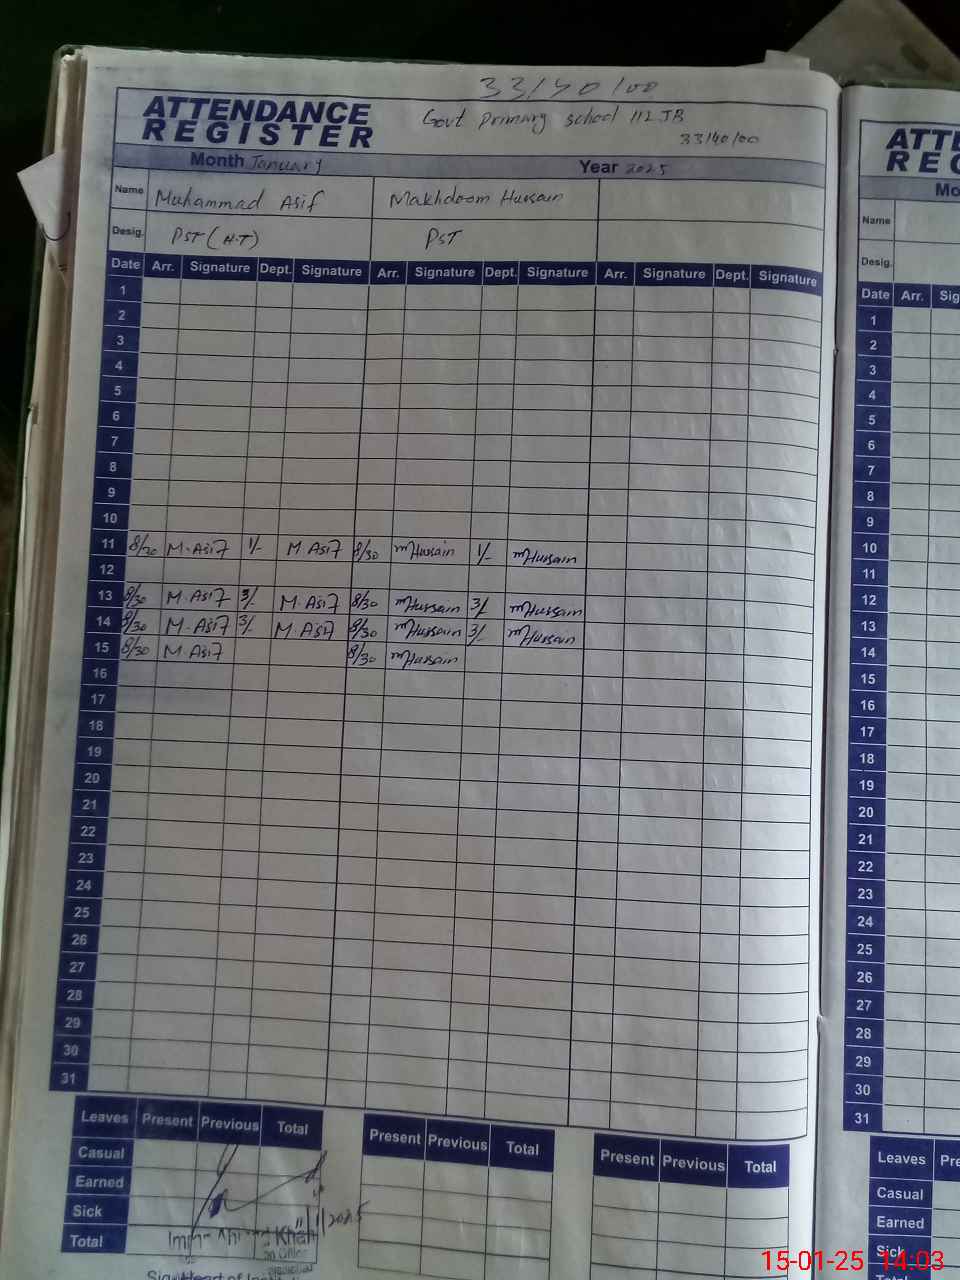 33/40/00
ATTENDANCE
REGISTER
Govt Primary school 112 JB
33/40/00
Month January Year 2025
Name Muhammad Asif Makhdoom Hussain
Desig. PST (H.T) PST
Date Arr. Signature Dept. Signature Arr. Signature Dept. Signature Arr. Signature Dept. Signature
1
2
3
4
5
6
7
8
9
10
11 8/30 M.Asif 1/- M.Asif 8/30 mHussain 1/- mHussain
12
13 8/30 M.Asif 3/- M.Asif 8/30 mHussain 3/- mHussain
14 8/30 M.Asif 3/- M.Asif 8/30 mHussain 3/- mHussain
15 8/30 M.Asif 8/30 mHussain
16
17
18
19
20
21
22
23
24
25
26
27
28
29
30
31
Leaves Present Previous Total Present Previous Total Present Previous Total
Casual
Earned
Sick
Total
2025
Khan
ATTE
REG
Mo
Name
Desig.
Date Arr. Sig
1
2
3
4
5
6
7
8
9
10
11
12
13
14
15
16
17
18
19
20
21
22
23
24
25
26
27
28
29
30
31
Leaves Pre
Casual
Earned
Sick
15-01-25 14:03